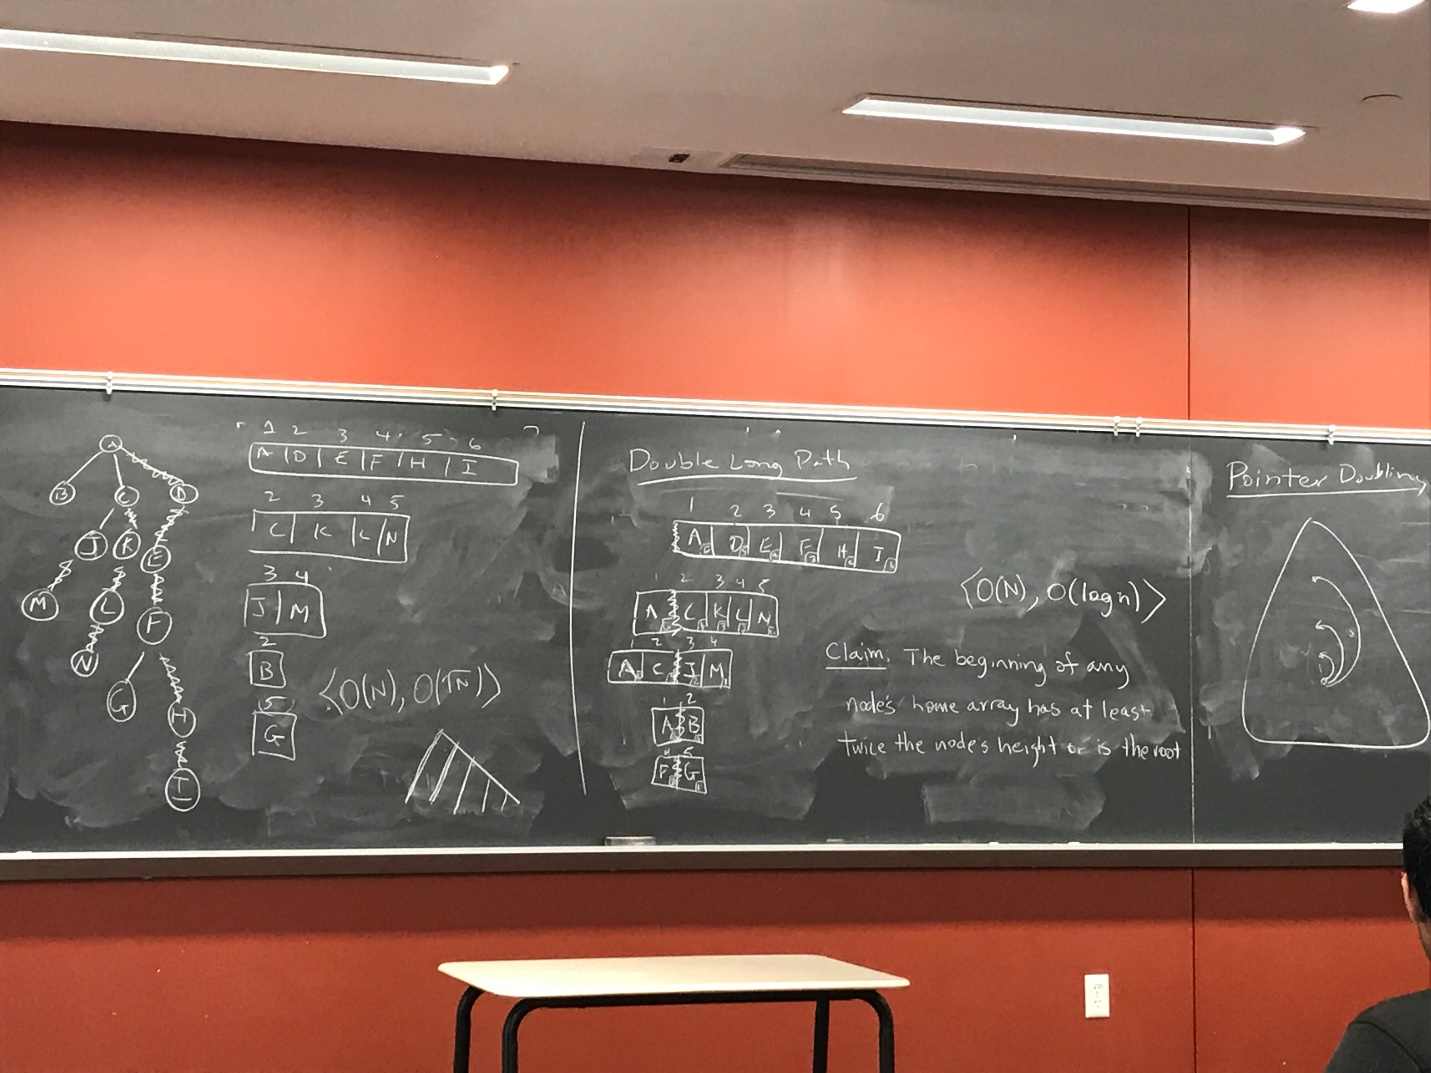 A
B C D
J K E
M L F
N
G H
I
1 2 3 4 5 6 7
A D E F H I
2 3 4 5
C K L N
3 4
J M
2
B
5
G
⟨O(N), O(√N)⟩
Double Long Path
1 2 3 4 5 6
A D E F H I
1 2 3 4 5
A C K L N
2 3 4
A C J M
1 2
A B
4 5
F G
⟨O(N), O(log n)⟩
Claim. The beginning of any
node's home array has at least
twice the node's height or is the root
Pointer Doubling